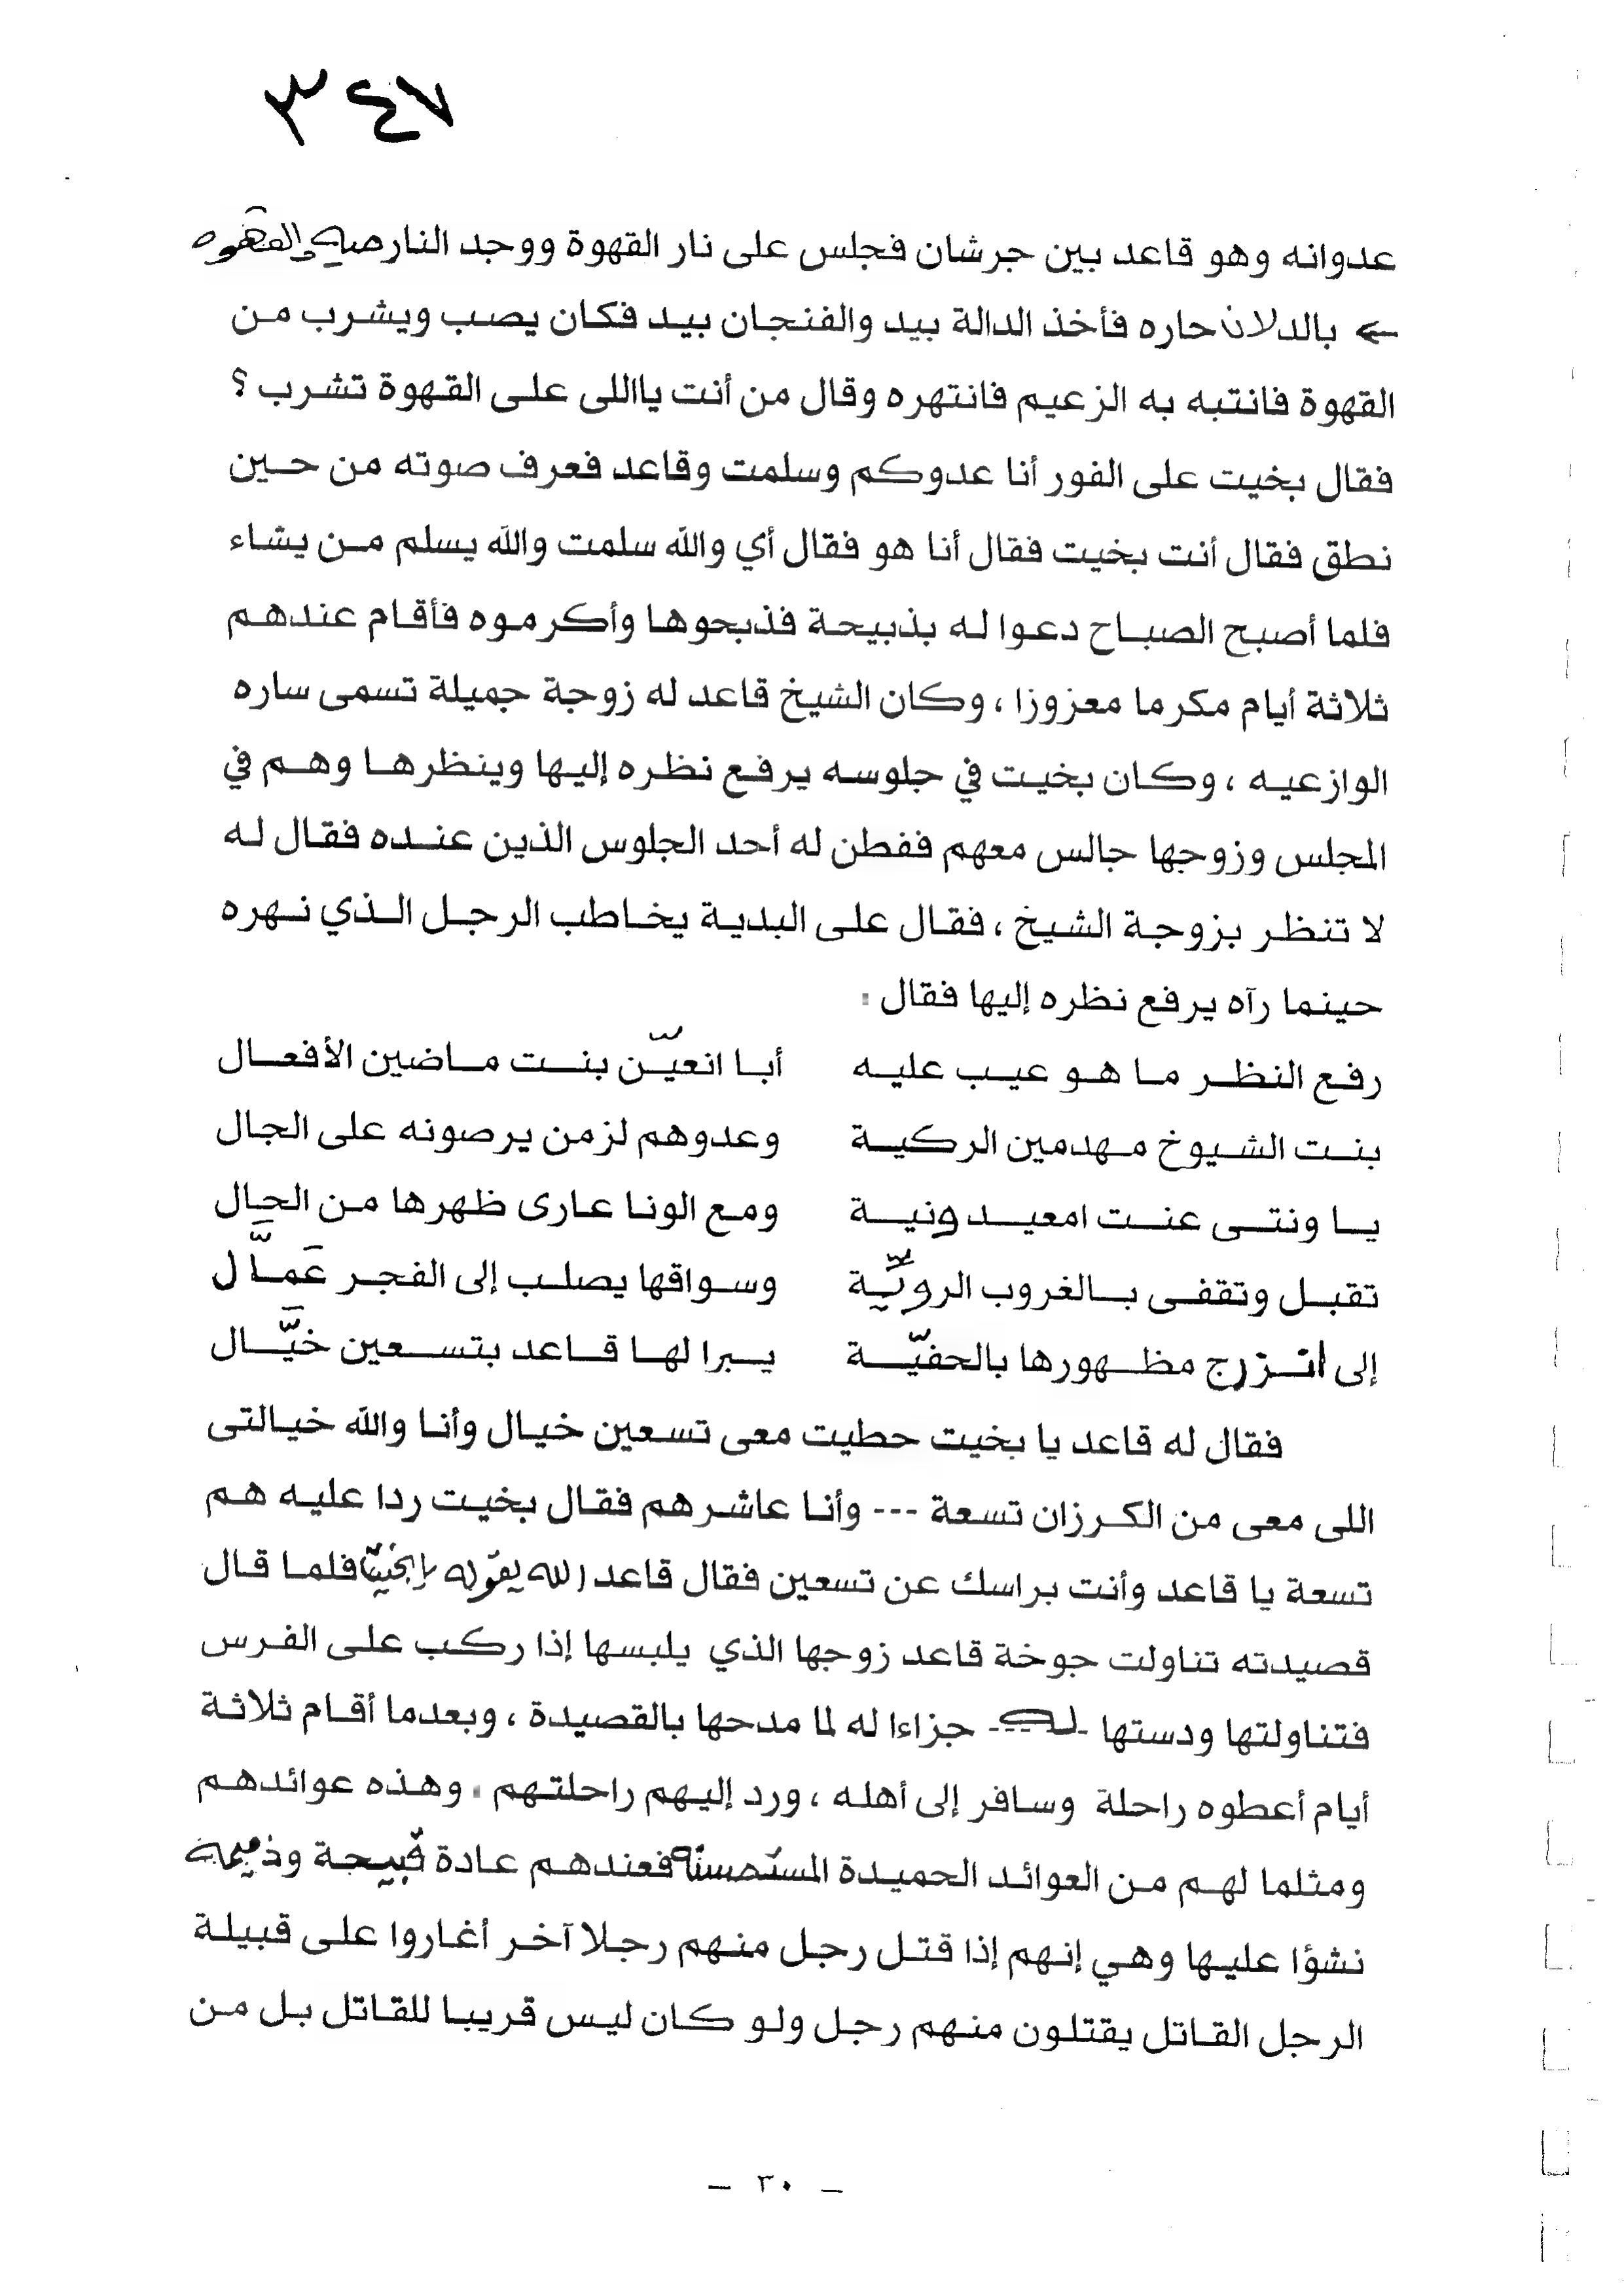 ٣٤٧
عدوانه وهو قاعد بين جرشان فجلس على نار القهوة ووجد النار صيك والقهوه
← بالدلان حاره فأخذ الدالة بيد والفنجان بيد فكان يصب ويشرب من
القهوة فانتبه به الزعيم فانتهره وقال من أنت يااللى على القهوة تشرب ؟
فقال بخيت على الفور أنا عدوكم وسلمت وقاعد فعرف صوته من حين
نطق فقال أنت بخيت فقال أنا هو فقال أي والله سلمت والله يسلم من يشاء
فلما أصبح الصباح دعوا له بذبيحة فذبحوها وأكرموه فأقام عندهم
ثلاثة أيام مكرما معزوزا ، وكان الشيخ قاعد له زوجة جميلة تسمى ساره
الوازعيه ، وكان بخيت في جلوسه يرفع نظره إليها وينظرها وهم في
المجلس وزوجها جالس معهم ففطن له أحد الجلوس الذين عنده فقال له
لا تنظر بزوجة الشيخ ، فقال على البدية يخاطب الرجل الذي نهره
حينما رآه يرفع نظره إليها فقال :
رفع النظر ما هو عيب عليه أبا انعيّن بنت ماضين الأفعال
بنت الشيوخ مهدمين الركية وعدوهم لزمن يرصونه على الجال
يا ونتى عنت امعيد ونية ومع الونا عارى ظهرها من الحال
تقبل وتقفى بالغروب الرويّة وسواقها يصلب إلى الفجر عَمَّال
إلى انزرج مظهورها بالحفيّة يبرا لها قاعد بتسعين خيَّال
فقال له قاعد يا بخيت حطيت معى تسعين خيال وأنا والله خيالتى
اللى معى من الكرزان تسعة --- وأنا عاشرهم فقال بخيت ردا عليه هم
تسعة يا قاعد وأنت براسك عن تسعين فقال قاعد الله يقوله يا بخيت فلما قال
قصيدته تناولت جوخة قاعد زوجها الذي يلبسها إذا ركب على الفرس
فتناولتها ودستها لـه جزاءا له لما مدحها بالقصيدة ، وبعدما أقام ثلاثة
أيام أعطوه راحلة وسافر إلى أهله ، ورد إليهم راحلتهم . وهذه عوائدهم
ومثلما لهم من العوائد الحميدة المستحسنة فعندهم عادة قبيحة وذميمة
نشؤا عليها وهي إنهم إذا قتل رجل منهم رجلا آخر أغاروا على قبيلة
الرجل القاتل يقتلون منهم رجل ولو كان ليس قريبا للقاتل بل من
– ٣٠ –